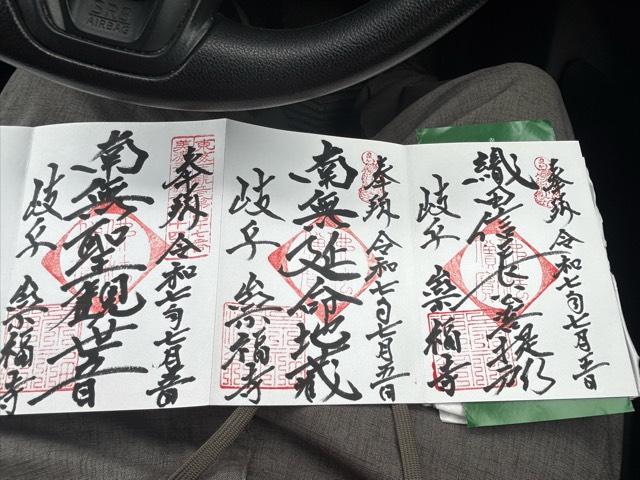 SRS
AIRBAG
奉拝 令和七年七月五日
織田信長公菩提所
岐阜 崇福寺
奉拝 令和七年七月五日
南無延命地蔵
岐阜 崇福寺
奉拝 令和七年七月五日
南無聖観世音
岐阜 崇福寺